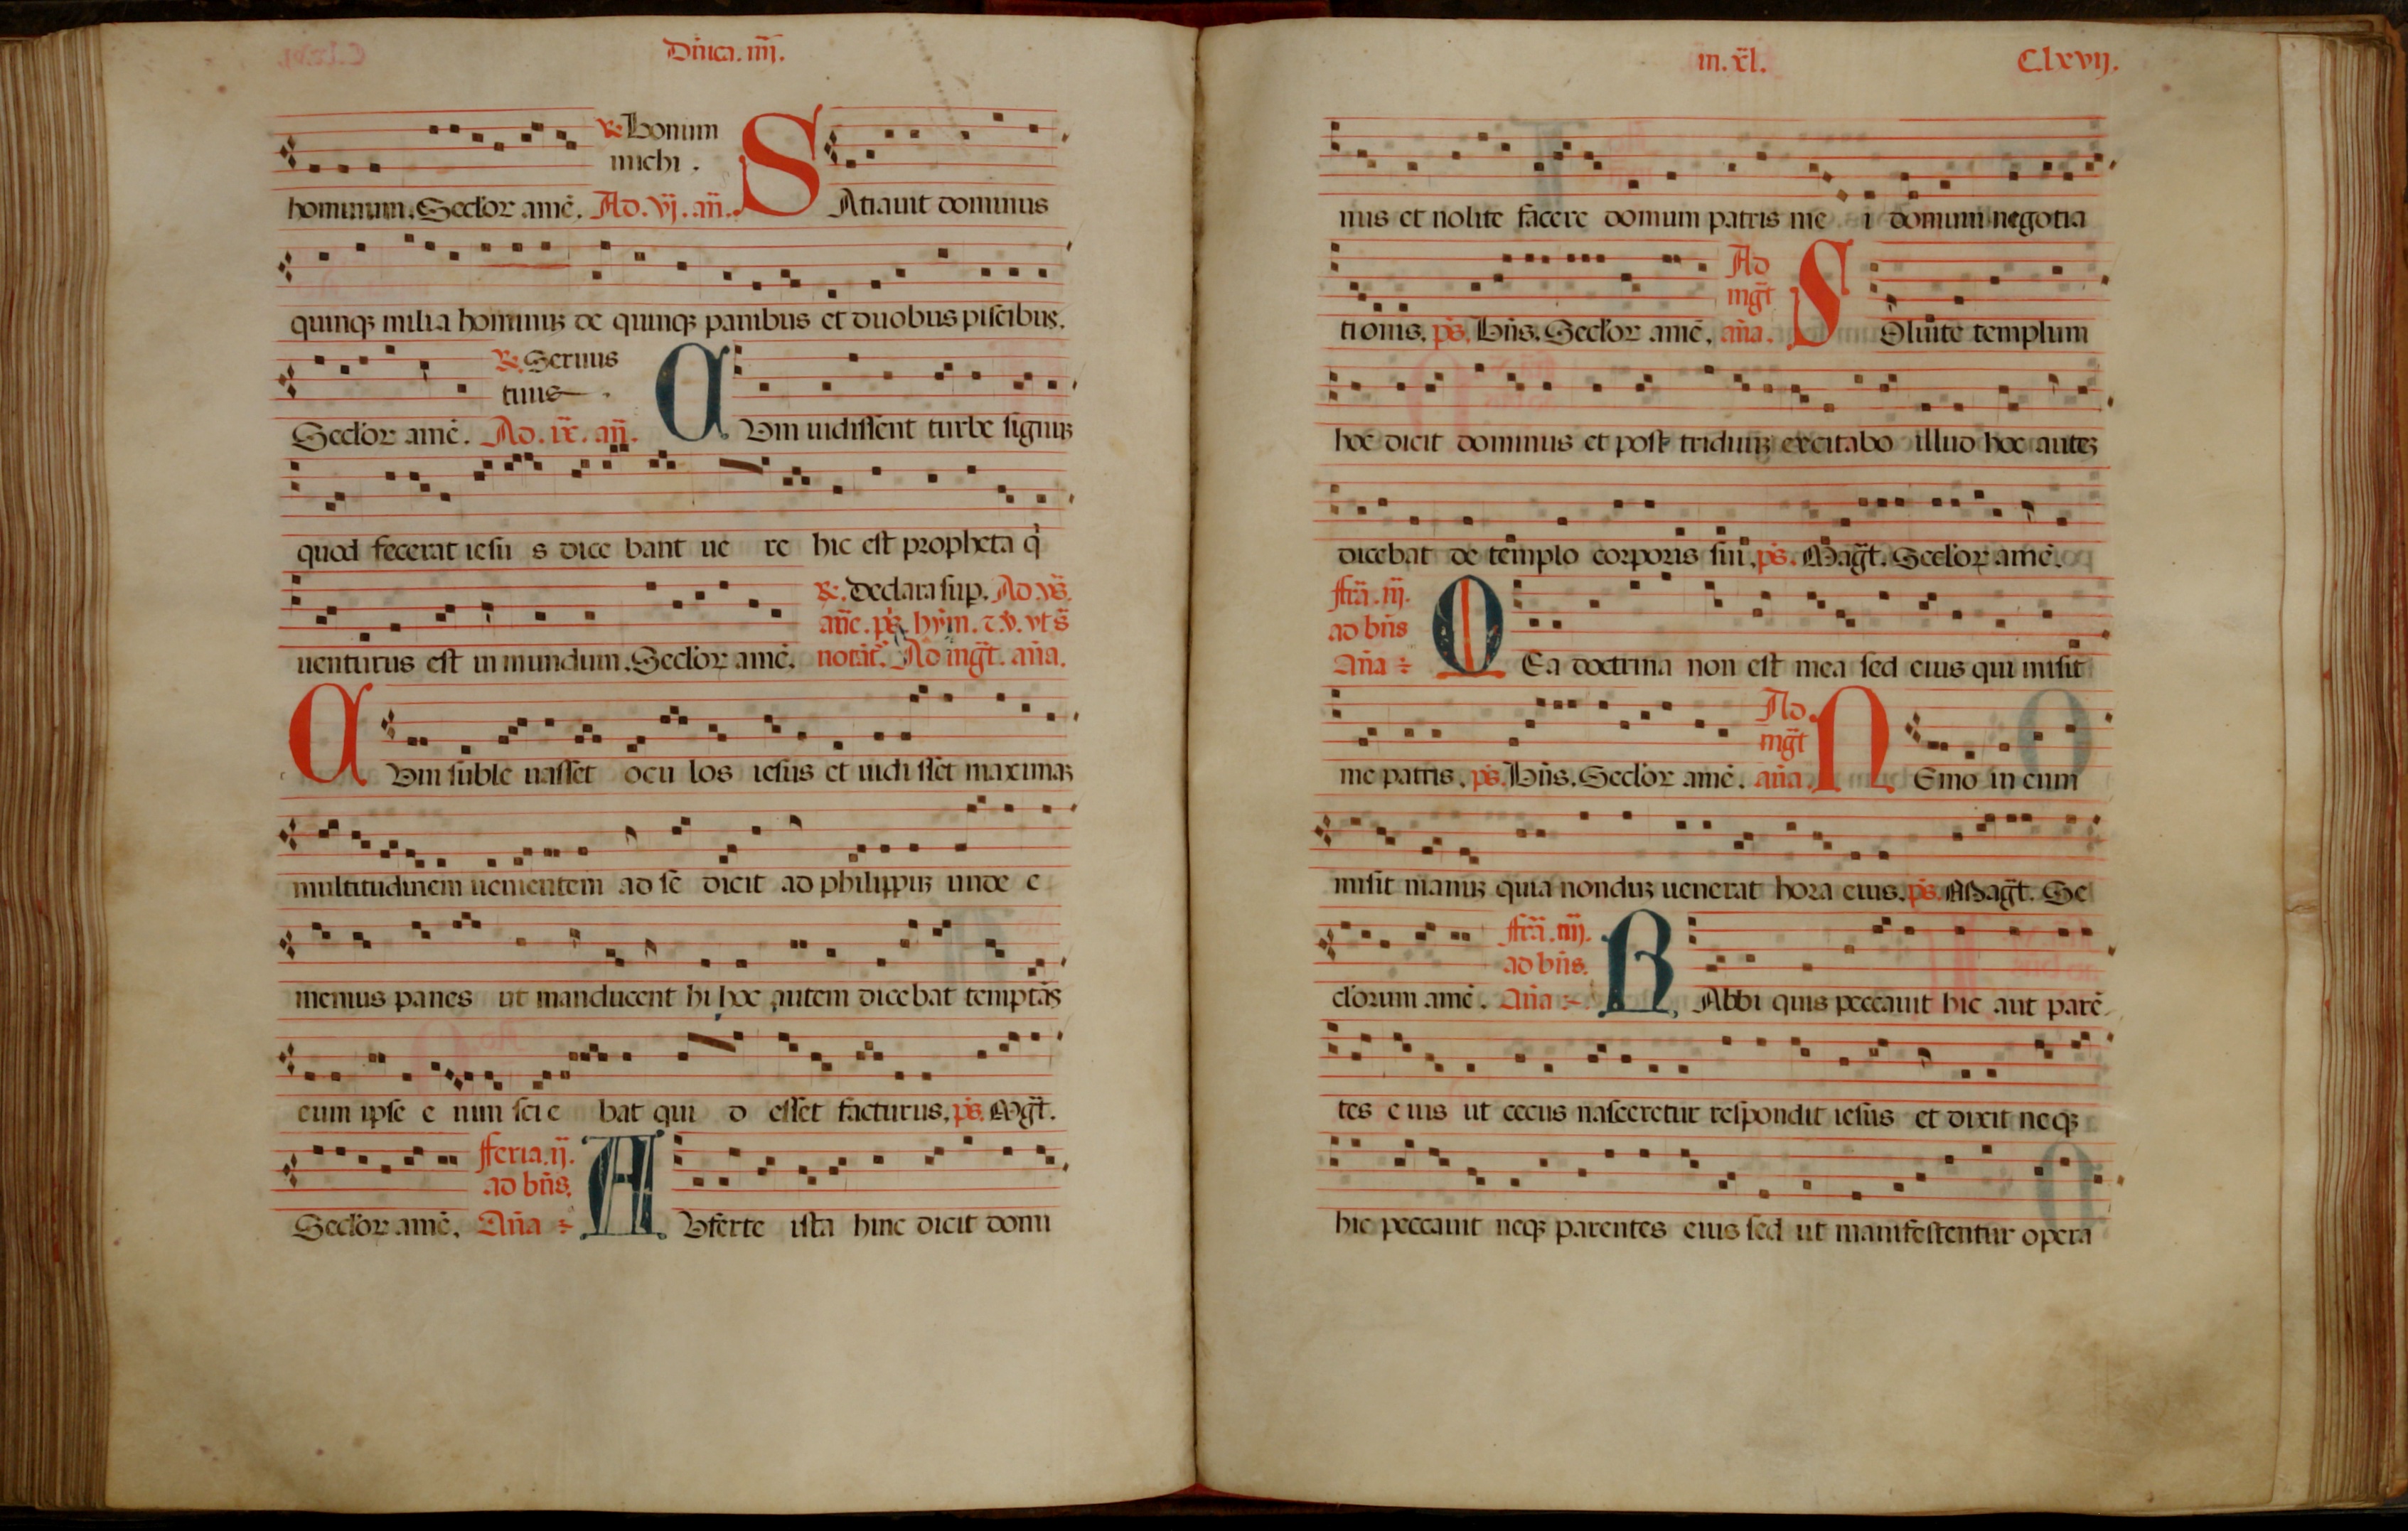 Dn̄ica. iiij.
℟. Bonum
michi.
hominum. Seculor amē. Ad. vj. an̄. SAtiauit dominus
quinqꝫ milia hominuꝫ de quinqꝫ panibus et duobus piscibus.
℟. Seruus
tuus
Seculor amē. Ad. ix. an̄. CVm uidissent turbe signuꝫ
quod fecerat iesu s dice bant ue re hic est propheta q̇
℟. Declara sup. Ad. vs̄.
an̄e. ps̄. hym̄. ⁊. v̄. vt s̄
uenturus est in mundum. Seculor amē. notāt. Ad mgt̄. an̄a.
CVm suble uasset ocu los iesus et uidi sset maximaꝫ
multitudinem uenientem ad se dicit ad philippuꝫ unde e
memus panes ut manducent hi hoc autem dicebat temptās
eum ipse e nim scie bat qui d esset facturus. ps̄. Mgt̄.
fferia. ij.
ad bn̄s.
Seculor amē. An̄a AVferte ista hinc dicit domi
in. xl̄. C.lxvij.
nus et nolite facere domum patris me i domum negotia
Ad
mgt̄
tionis. ps̄. Bn̄s. Seculor amē. an̄a. SOluite templum
hoc dicit dominus et post triduuꝫ excitabo illud hoc auteꝫ
dicebat de templo corporis sui. ps̄. Magt̄. Seculor amē.
ffr̄a. iij.
ad bn̄s
An̄a MEa doctrina non est mea sed eius qui misit
Ad
mgt̄
me patris. ps̄. Bn̄s. Seculor amē. an̄a. NEmo in eum
misit manuꝫ quia nonduꝫ uenerat hora eius. ps̄. Magt̄. Se
ffr̄a. iiij.
ad bn̄s.
culorum amē. An̄a RAbbi quis peccauit hic aut parē
tes e ius ut cecus nasceretur respondit iesus et dixit neqꝫ
hic peccauit neqꝫ parentes eius sed ut manifestentur opera